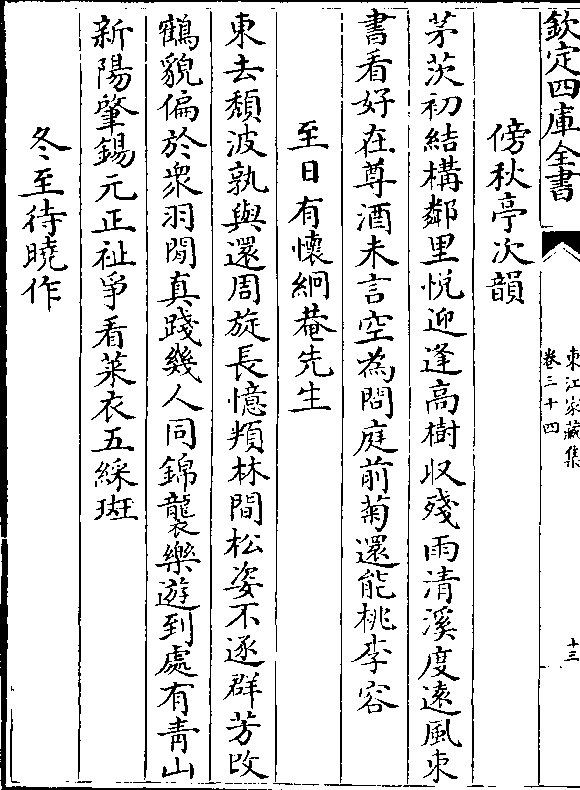 欽定四庫全書
東江家藏集
卷三十四
十三
傍秋亭次韻
茅茨初結構鄰里悅迎逢高樹收殘雨清溪度遠風束
書看好在尊酒未言空為問庭前菊還能桃李容
至日有懷絅菴先生
東去頹波孰與還周旋長憶類林間松姿不逐羣芳改
鶴貌偏於衆羽閒真踐幾人同錦襲樂遊到處有青山
新陽肇錫元正祉爭看萊衣五綵斑
冬至待曉作